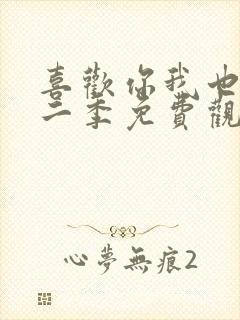 喜歡你我也
二季免費觀
心夢無痕2